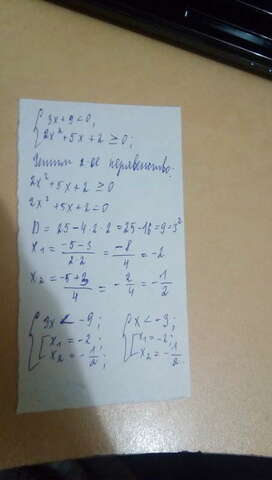 { 3x+9<0;
{ 2x²+5x+2 ≥0;
Решим 2-ое неравенство:
2x²+5x+2 ≥0
2x²+5x+2=0
D = 25-4·2·2=25-16=9=3²
x₁ = (-5-3)/(2·2) = -8/4 = -2
x₂ = (-5+3)/4 = -2/4 = -1/2
{ 3x < -9; [ x₁=-2; x₂=-1/2;
{ x<-3; [ x₁=-2; x₂=-1/2.